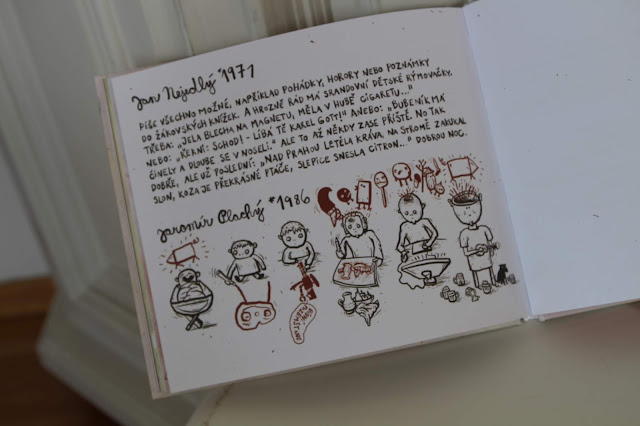 Jan Nejedlý *1971
PÍŠE VŠECHNO MOŽNÉ, NAPŘÍKLAD POHÁDKY, HORORY NEBO POZNÁMKY
DO ŽÁKOVSKÝCH KNÍŽEK. A HROZNĚ RÁD MÁ SRANDOVNÍ DĚTSKÉ RÝMOVAČKY.
TŘEBA: „JELA BLECHA NA MAGNETU, MĚLA V HUBĚ CIGARETU...“
NEBO: „ŘEKNI: SCHODY – LÍBÁ TĚ KAREL GOTT!“ ANEBO: „BUBENÍK MÁ
ČINELY A DLOUBE SE V NOSELI.“ ALE TO AŽ NĚKDY ZASE PŘÍŠTĚ. NO TAK
DOBŘE, ALE UŽ POSLEDNÍ: „NAD PRAHOU LETĚLA KRÁVA, NA STROMĚ ZAKUKAL
SLON, KOZA JE PŘEKRÁSNÉ PTÁČE, SLEPICE SNESLA CITRON...“ DOBROU NOC.
Jaromír Plachý *1986